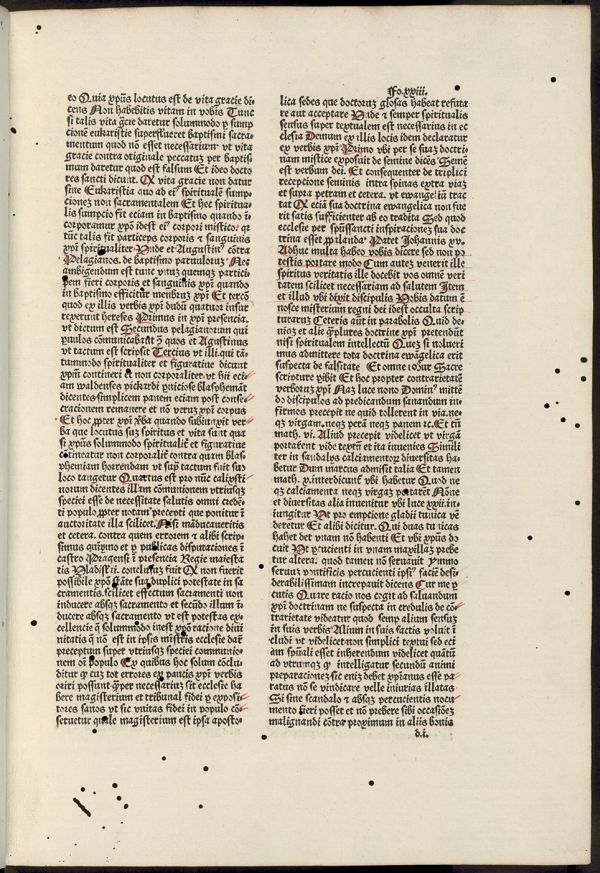 Fo.xxiii.
eo Quia xp̄us locutus est de vita gracie di
cens Non habebitis vitam in vobis Tunc
si talis vita gr̄cie daretur solummodo ꝑ sump
cionē eukaristie superflueret baptismi sacra
mentum quod nō esset necessarium vt vita
gracie contra originale peccatuꝫ per baptis
mum daretur quod est falsum Et ideo docto
res sancti dicunt. Qꝫ vita gracie non datur
sine Eukaristia quo ad eiꝰ spiritualē sump
cioneꝫ non sacramentalem Et hec spiritua
lis sumpcio fit eciam in baptismo quando ī
corporamur xp̄o idest eiꝰ corpori misticoꝫ qꝛ
tūc talis fit particeps corporis ⁊ sanguinis
xp̄i spiritualiter Vnde et Augustinꝰ cōtra
Pelagianos. de baptismo paruuloruꝫ Nec
ambigendum est tunc vnuꝫ quenqꝫ partici
pem fieri corporis et sanguinis xp̄i quando
in baptismo efficitur membruꝫ xp̄i Et tercō
quod ex illis verbis xp̄i dudū quatuor insur
rexerunt hereses Primus in xp̄i presencia.
vt dictum est Secundus pelagianorum qui
puulos communicabant ꝫ quos et Augustinus
vt tactum est scripsit Tercius vt illi. qui tā
tummodo spiritualiter et figuratiue dicunt
xp̄m contineri ⁊ non corporaliter. vt hii eci
am waldenses pickardi ꝑniciose blasphemāt
dicentes simplicem panem eciam post conse
cracionem remanere et nō verum xp̄i corpus
Et hec ꝓpter xp̄i x̄ba quando subiunxit ver
ba que locutus suꝫ spiritus et vita sunt qua
si xp̄us solummodo spiritualit̄ et figuratiue
cōtineatur non corporalit̄ contra quam blas
phemiam horrendam vt supͣ tactum fuit suo
loco tangetur Quartus est pro nūc calixti
norum dicentes illam cōmunionem vtriusqꝫ
speciei esse de necessitate salutis omni crede
ti populo ꝓpter notam p̄cepti que ponitur ī
auctoritate illa scilicet. Nisi māducaueritis
et cetera. contra quem errorem ⁊ alibi scrip
simus quīymo et ꝑ publicas disputaciones ī
castro Pragensi ī presencia Regie maiesta
tis Vladislai. conclusuꝫ fuit Qꝫ non fuerit
possibile xp̄m stāte sua duplici potestate in sa
cramentis. scilicet effectum sacramenti non
inducere absqꝫ sacramento et secūdo illum ī
ducere absqꝫ sacramento vt est potestas ex
cellencie q̄ solummodo inest xp̄o racione diui
nitatis q̄ nō est in ipsis mīstris ecclesie dar̄
preceptum super vtriusqꝫ speciei communio
nem oī populo Ex quibus hec solum cōclu
ditur qꝫ cuꝫ tot errores ex paucis xp̄i verbis
oriri possunt ꝙper necessariuꝫ sit ecclesie ha
bere magisterium et tribunal fidei ꝑ exposi
tores sanos vt sic vnitas fidei in populo cō
seruetur quale magisterium est ipsa aposto
lica sedes que doctorum glosas habeat refuta
re aut acceptare Vnde ⁊ semper spiritualis
sensus super textualem est necessarius in ec
clesia Demum ex illis locis idem declaratur
ex verbis xp̄i Primo vbi per se suaꝫ doctri
nam mistice exposuit de semine dicēs Semē
est verbum dei. Et consequenter de triplici
recepcione seminis intra spinas extra viaꝫ
et supra petram et cetera. vt ewangeliū trac
tat Qꝫ eciā sua doctrina ewangelica non fue
rit satis sufficienter ab eo tradita Sed quod
ecclesie per sp̄ussancti inspiracionēs sua doc
trina esset ꝓpalanda Patet Johannis xv.
Adhuc multa habeo vobis dicere sed non po
testis portare modo Cum autem venerit ille
spiritus veritatis ille docebit vos omnē veri
tatem scilicet necessariam ad salutem Item
et illud vbi dixit discipulis Vobis datum ē
nosce misterium regni dei idest occulta scrip
turarum Ceteris aūt in parabolis Quid de
niqꝫ et alie q̄plures doctrine xp̄i pretendūt
nisi spiritualem intellectū Queꝫ si noluerī
mus admittere tota doctrina ewāgelica erit
suspecta de falsitate Et omne rosur Sacre
scripture ꝑibit Et hoc propter contrarietatē
verborum xp̄i Nam luce nono Dominꝰ mittē
do discipulos ad predicandum sanandum in
firmos precepit ne quid tollerent in via. ne
qꝫ virgam. neqꝫ perā neqꝫ panem ⁊c. Et tn̄
math. vi. Aliud precepit videlicet vt virgā
portabent vide textū et ita inuenies Simili
ter in sandalys calciamentorꝫ diuersitas ha
betur Dum marcus admisit talia Et tamen
math. x. interdicunt̄ vbi habetur Quod ne
qꝫ calciamenta neqꝫ virgaꝫ portaret Nōne
et diuersitas alia inuenitur vbi luce xxii. in
iungitur Vt pro empcione gladii tunica vē
deretur Et alibi dicitur. Qui duas tunicas
habet det vnam nō habenti Et vbi xp̄us do
cuit Vt ꝑcucienti in vnam maxillam prebe
tur altera. quod tamen nō seruauit ymmo
seruum pontificis percucienti ipsiꝰ faciē desi
derabilissimam increpuit dicens Cur me ꝑ
cutis Quare racio nos cogit ad saluandum
xp̄i doctrinam ne suspecta in credulis de cō
trarietate videatur quod semp̄ alium sensuꝫ
in suis verbis Alium in suis factis voluit ī
cludi vt videlicet non simplici textui sed eci
am sp̄uali esset inherendum videlicet quātū
ad vtrumqꝫ qꝛ intelligatur secundū animi
preparacioneꝫ sic eniꝫ debet xp̄ianus esse pa
ratus nō se vindicare velle iniurias illatas
Si sine scandalo ⁊ absqꝫ percucientis nocu
mento fieri posset et nō prebere sibi occasiōeꝫ
malignandi cōtra proximum in aliis bonis
d.i.